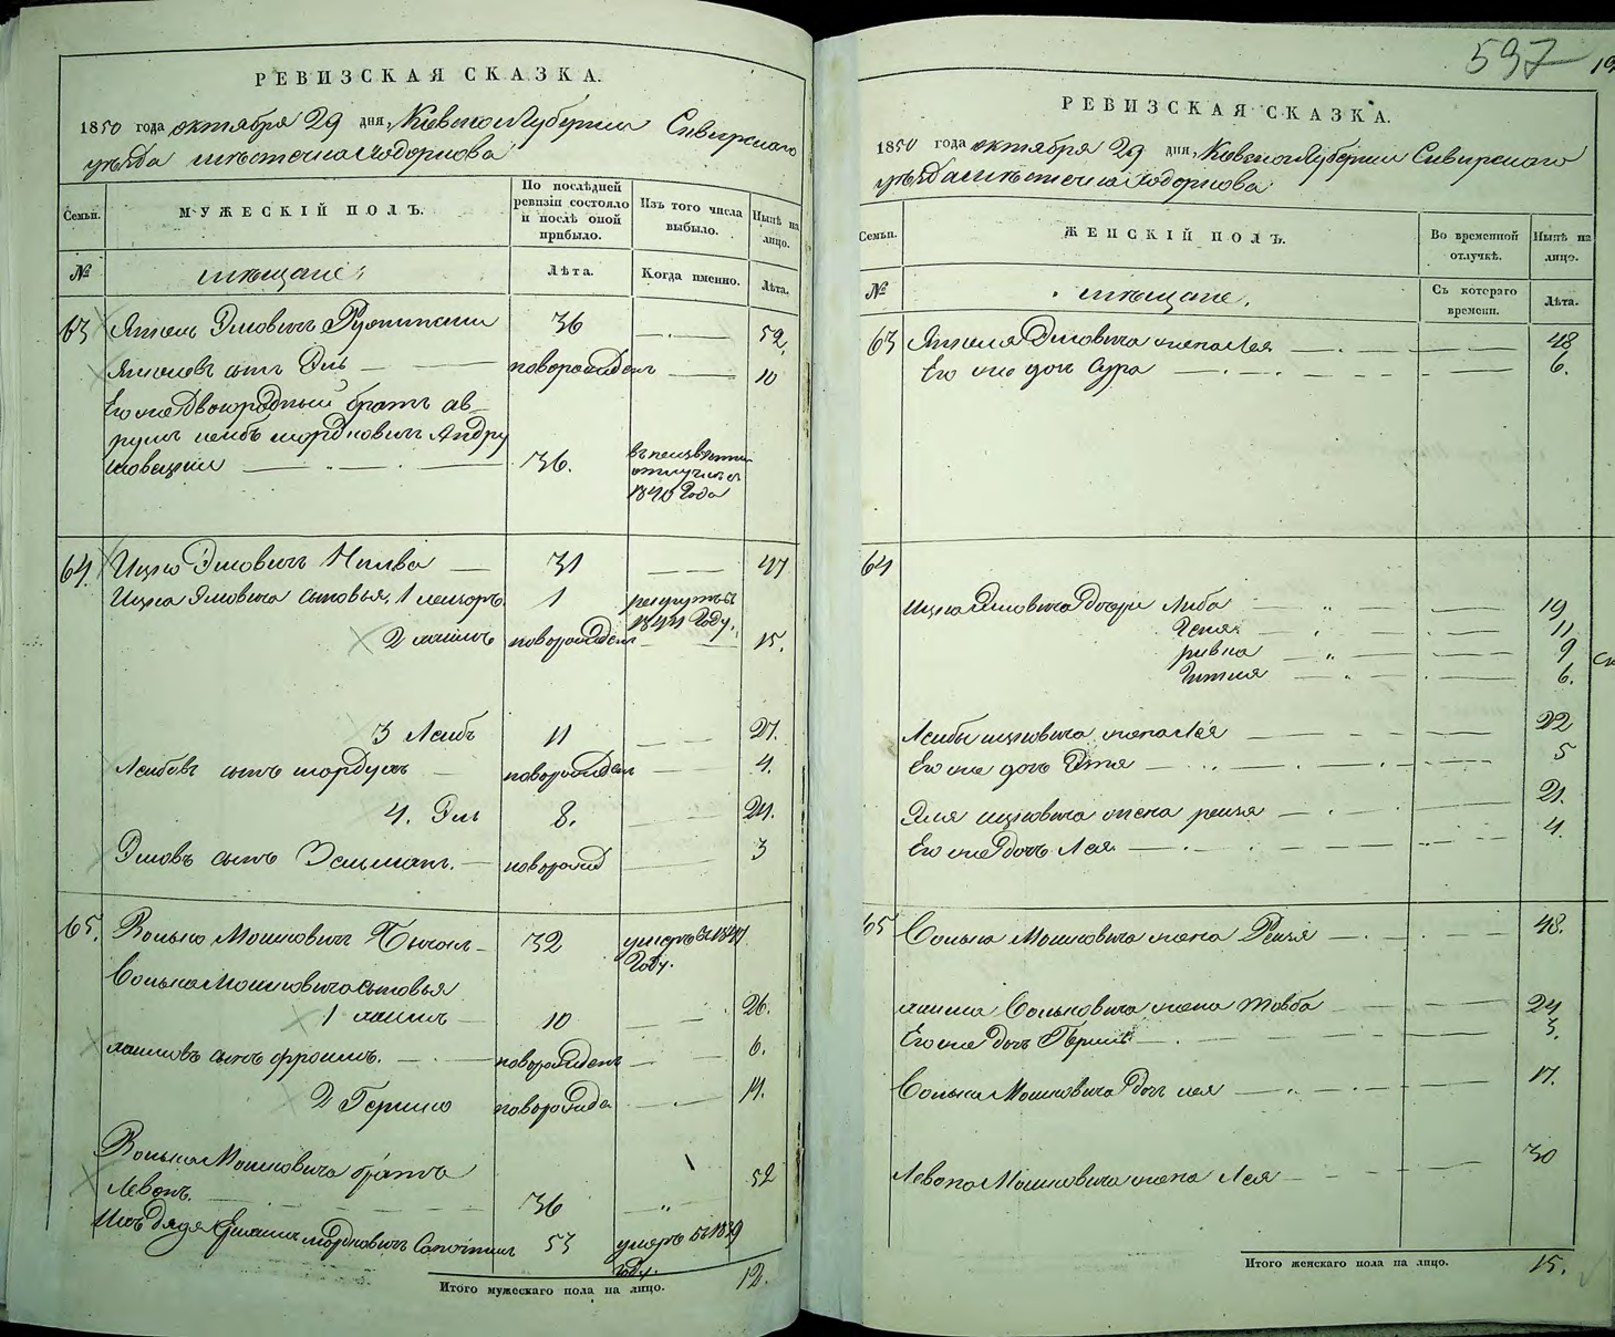 РЕВИЗСКАЯ СКАЗКА.
1850 года октября 29 дня, Киевской Губернии Сквирского
уѣзда мѣстечка Ходоркова
Семьи.
МУЖЕСКІЙ ПОЛЪ.
По послѣдней ревизіи состояло и послѣ оной прибыло.
Изъ того числа выбыло.
Нынѣ на лицо.
№
мѣщане,
Лѣта.
Когда именно.
Лѣта.
63 Эліовичъ 36 52.
сынъ Эль новорожденъ 10
Его же двоюродный братъ Ав-
румъ Лейбъ Мордковичъ Андру
шовецкій 36. въ неизвѣстной отлучкѣ съ 1840 Года
64. Ицко Эліовичъ 31 47
Ицка Эліовича сыновья, 1 1 рекрутъ въ 1841 Году.
2 Хаимъ новорожденъ 15.
3 Лейбъ 11 27.
Лейбовъ сынъ Мордухъ новорожден 4.
4. Эль 8. 24.
Эліовъ сынъ Зельманъ. новорожд 3
65. Волько Мошковичъ 32 умеръ въ 1847 Году.
Волька Мошковича сыновья
1 Хаимъ 10 26.
Хаимовъ сынъ Фроимъ. новорожденъ 6.
2 Гершко новорожде 14.
Волька Мошковича братъ
Левонъ. 36 52
Ихъ дядя Мордковичъ 53 умеръ въ 1839 году.
Итого мужескаго пола на лицо. 12.
597
РЕВИЗСКАЯ СКАЗКА.
1850 года октября 29 дня, Киевской Губернии Сквирского
уѣзда мѣстечка Ходоркова
Семьи.
ЖЕНСКІЙ ПОЛЪ.
Во временной отлучкѣ.
Нынѣ на лицо.
№
мѣщане,
Съ котораго времени.
Лѣта.
63 Эліовича жена Лея 48
Его же дочь Сура 6.
64
Ицка Эліовича дочери Либа 19
Геня 11
Ривка 9
Гитля 6.
Лейбы Ицковича жена Лея 22
Его же дочь Этя 5
Эля Ицковича жена Рейзя 21.
Его же дочь Лея 4.
65 Волька Мошковича жена Рейзя 48.
Хаима Вольковича жена Товба 24
Его же дочь 3.
Волька Мошковича дочь Лея 17.
Левона Мошковича жена Лея 30
Итого женскаго пола на лицо. 15.